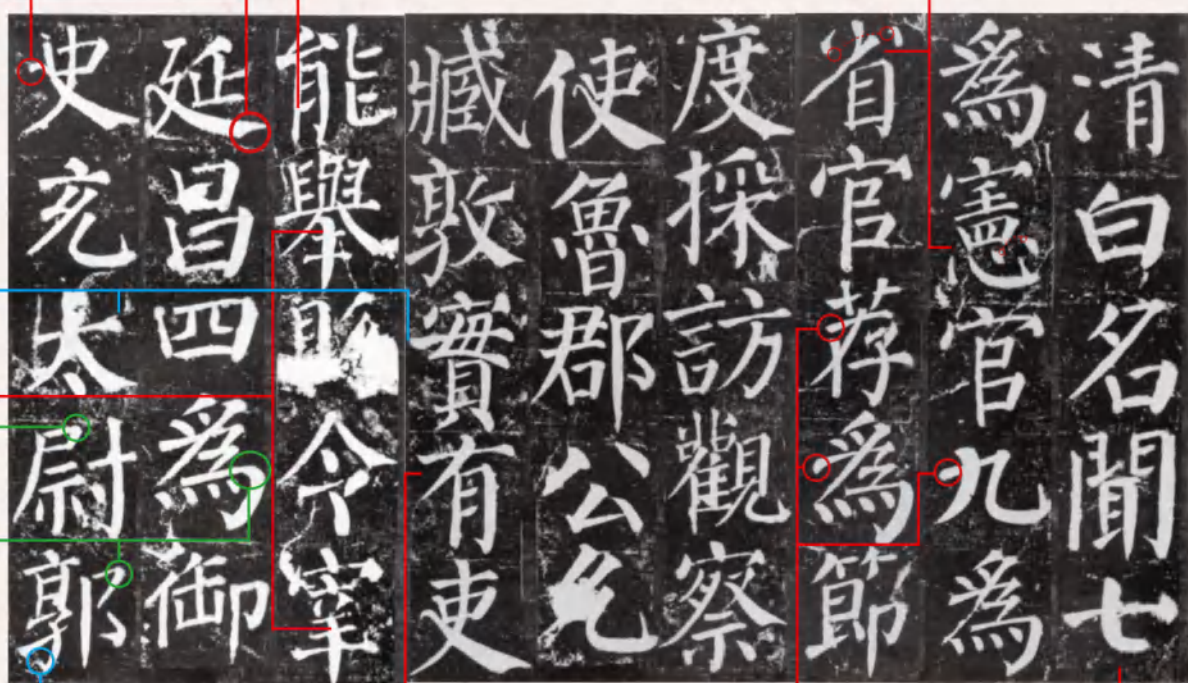 清白名聞七
爲憲官九爲
省官荐爲節
度採訪觀察
使魯郡公允
臧敦實有吏
能舉令宰
延昌四爲御
史充太尉郭